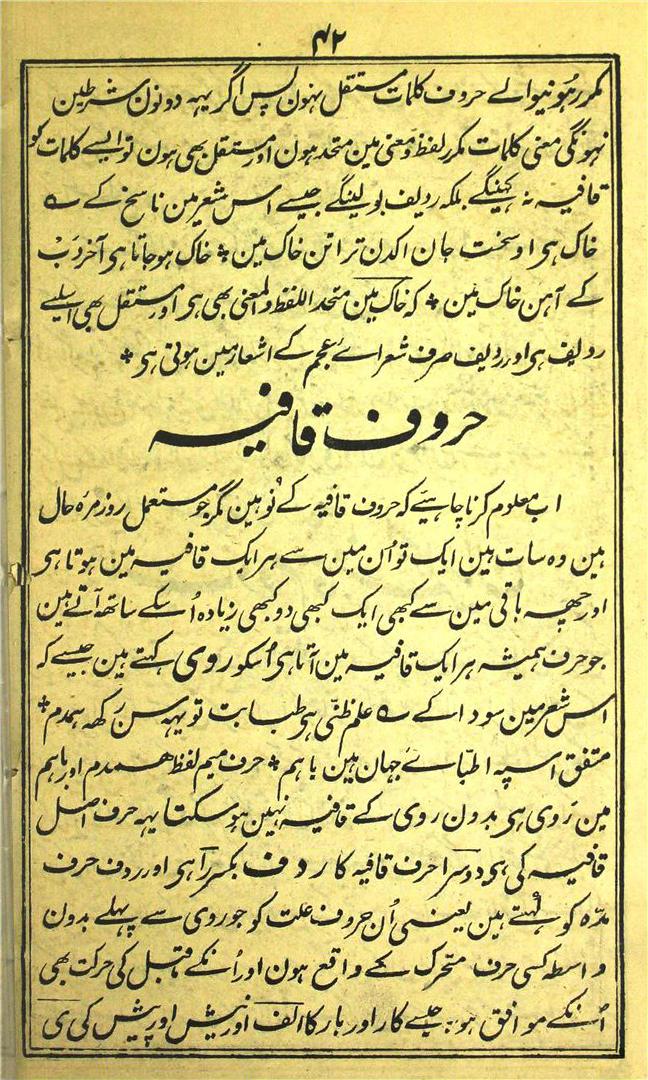 ۴۲
مکرر ہونیوالے حروف کلمات مستقل نہون پس اگر یہہ دونون شرطین
نہونگی معنی کلمات مکرر لفظ و معنی مین متحد ہون اور مستقل بھی ہون تو ایسے کلمات کو
قافیہ نہ کہینگے بلکہ ردیف بولینگے جیسے اس شعر مین ناسخ کے ؎
خاک ہی او سخت جان اکدن ترا تن خاک مین * خاک ہو جاتا ہی آخر دَبْ
کے آہن خاک مین * کہ خاک مین متحد اللفظ والمعنی بھی ہی اور مستقل بھی اسلیے
ردیف ہی اور ردیف صرف شعراے عجم کے اشعار مین ہوتی ہی *
حروف قافیہ
اب معلوم کرنا چاہیئے کہ حروف قافیہ کے نُو ہین مگر جو مستعمل روزمرہ حال
ہین وہ سات ہین ایک تو اُن مین سے ہر ایک قافیہ مین ہوتا ہی
اور چھہ باقی مین سے کبھی ایک کبھی دو کبھی زیادہ اُسکے ساتھ آتے ہین
جو حرف ہمیشہ ہر ایک قافیہ مین آتا ہی اُسکو روی کہتے ہین جیسے کہ
اس شعر مین سودا کے ؎ علم ظنّی ہی طبابت تو یہہ سن رکھہ ہمدم *
متفق اسپہ اطبّاے جہان ہین باہم * حرف میم لفظ ہمدم اور باہم
مین رَوی ہی بدون روی کے قافیہ نہین ہو سکتا یہہ حرف اصل
قافیہ کی ہی دوسرا حرف قافیہ کا ردف بکسر را ہی اور ردف حرف
مدّہ کو کہتے ہین یعنی اُن حروف علت کو جو روی سے پہلے بدون
واسطہ کسی حرف متحرک کے واقع ہون اور اُنکے ماقبل کی حرکت بھی
اُنکے موافق ہو جیسے کار اور بار کا الف اور نیش اور پیش کی ی